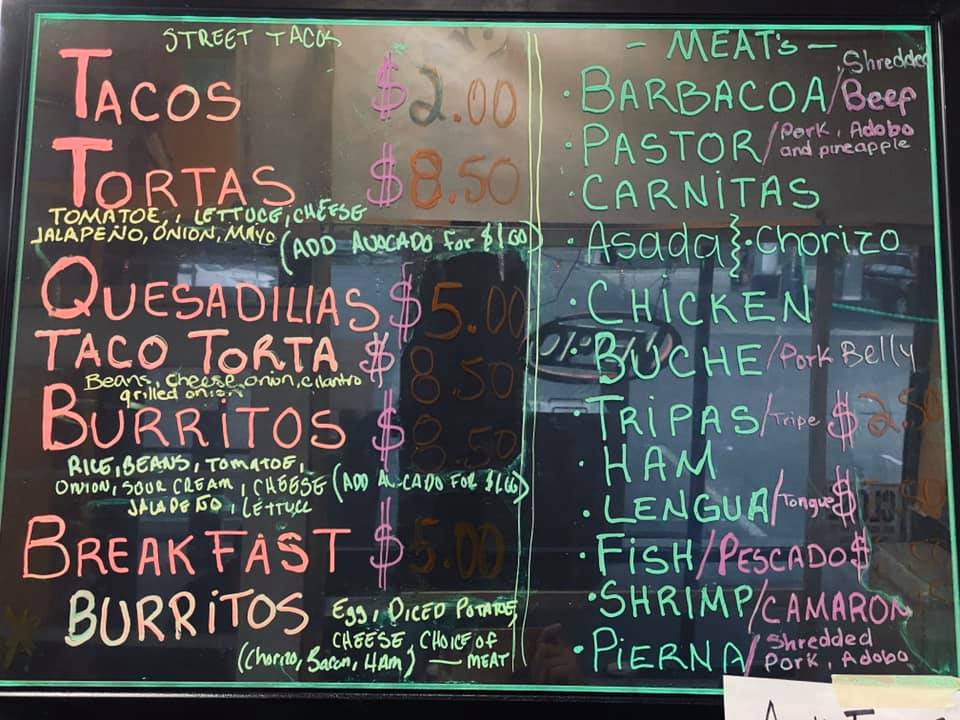 STREET TACOS
TACOS $2.00
TORTAS $8.50
TOMATOE, LETTUCE, CHEESE
JALAPEÑO, ONION, MAYO (ADD AVOCADO FOR $1.00)
QUESADILLAS $5.00
TACO TORTA $8.50
Beans, cheese, onion, cilantro
grilled onion
BURRITOS $8.50
RICE, BEANS, TOMATOE,
ONION, SOUR CREAM, CHEESE (ADD AVOCADO FOR $1.00)
JALAPEÑO, LETTUCE
BREAKFAST $5.00
BURRITOS
Egg, DICED POTATOE,
CHEESE, CHOICE of
(Chorizo, Bacon, HAM) — MEAT
- MEAT's -
· BARBACOA/Shredded
Beef
· PASTOR/Pork, Adobo
and pineapple
· CARNITAS
· Asada · Chorizo
· CHICKEN
OPEN
· BUCHE/Pork Belly
· TRIPAS/Tripe $2.50
· HAM
· LENGUA/Tongue $
· FISH/PESCADO $
· SHRIMP/CAMARON
· PIERNA/Shredded
Pork, Adobo